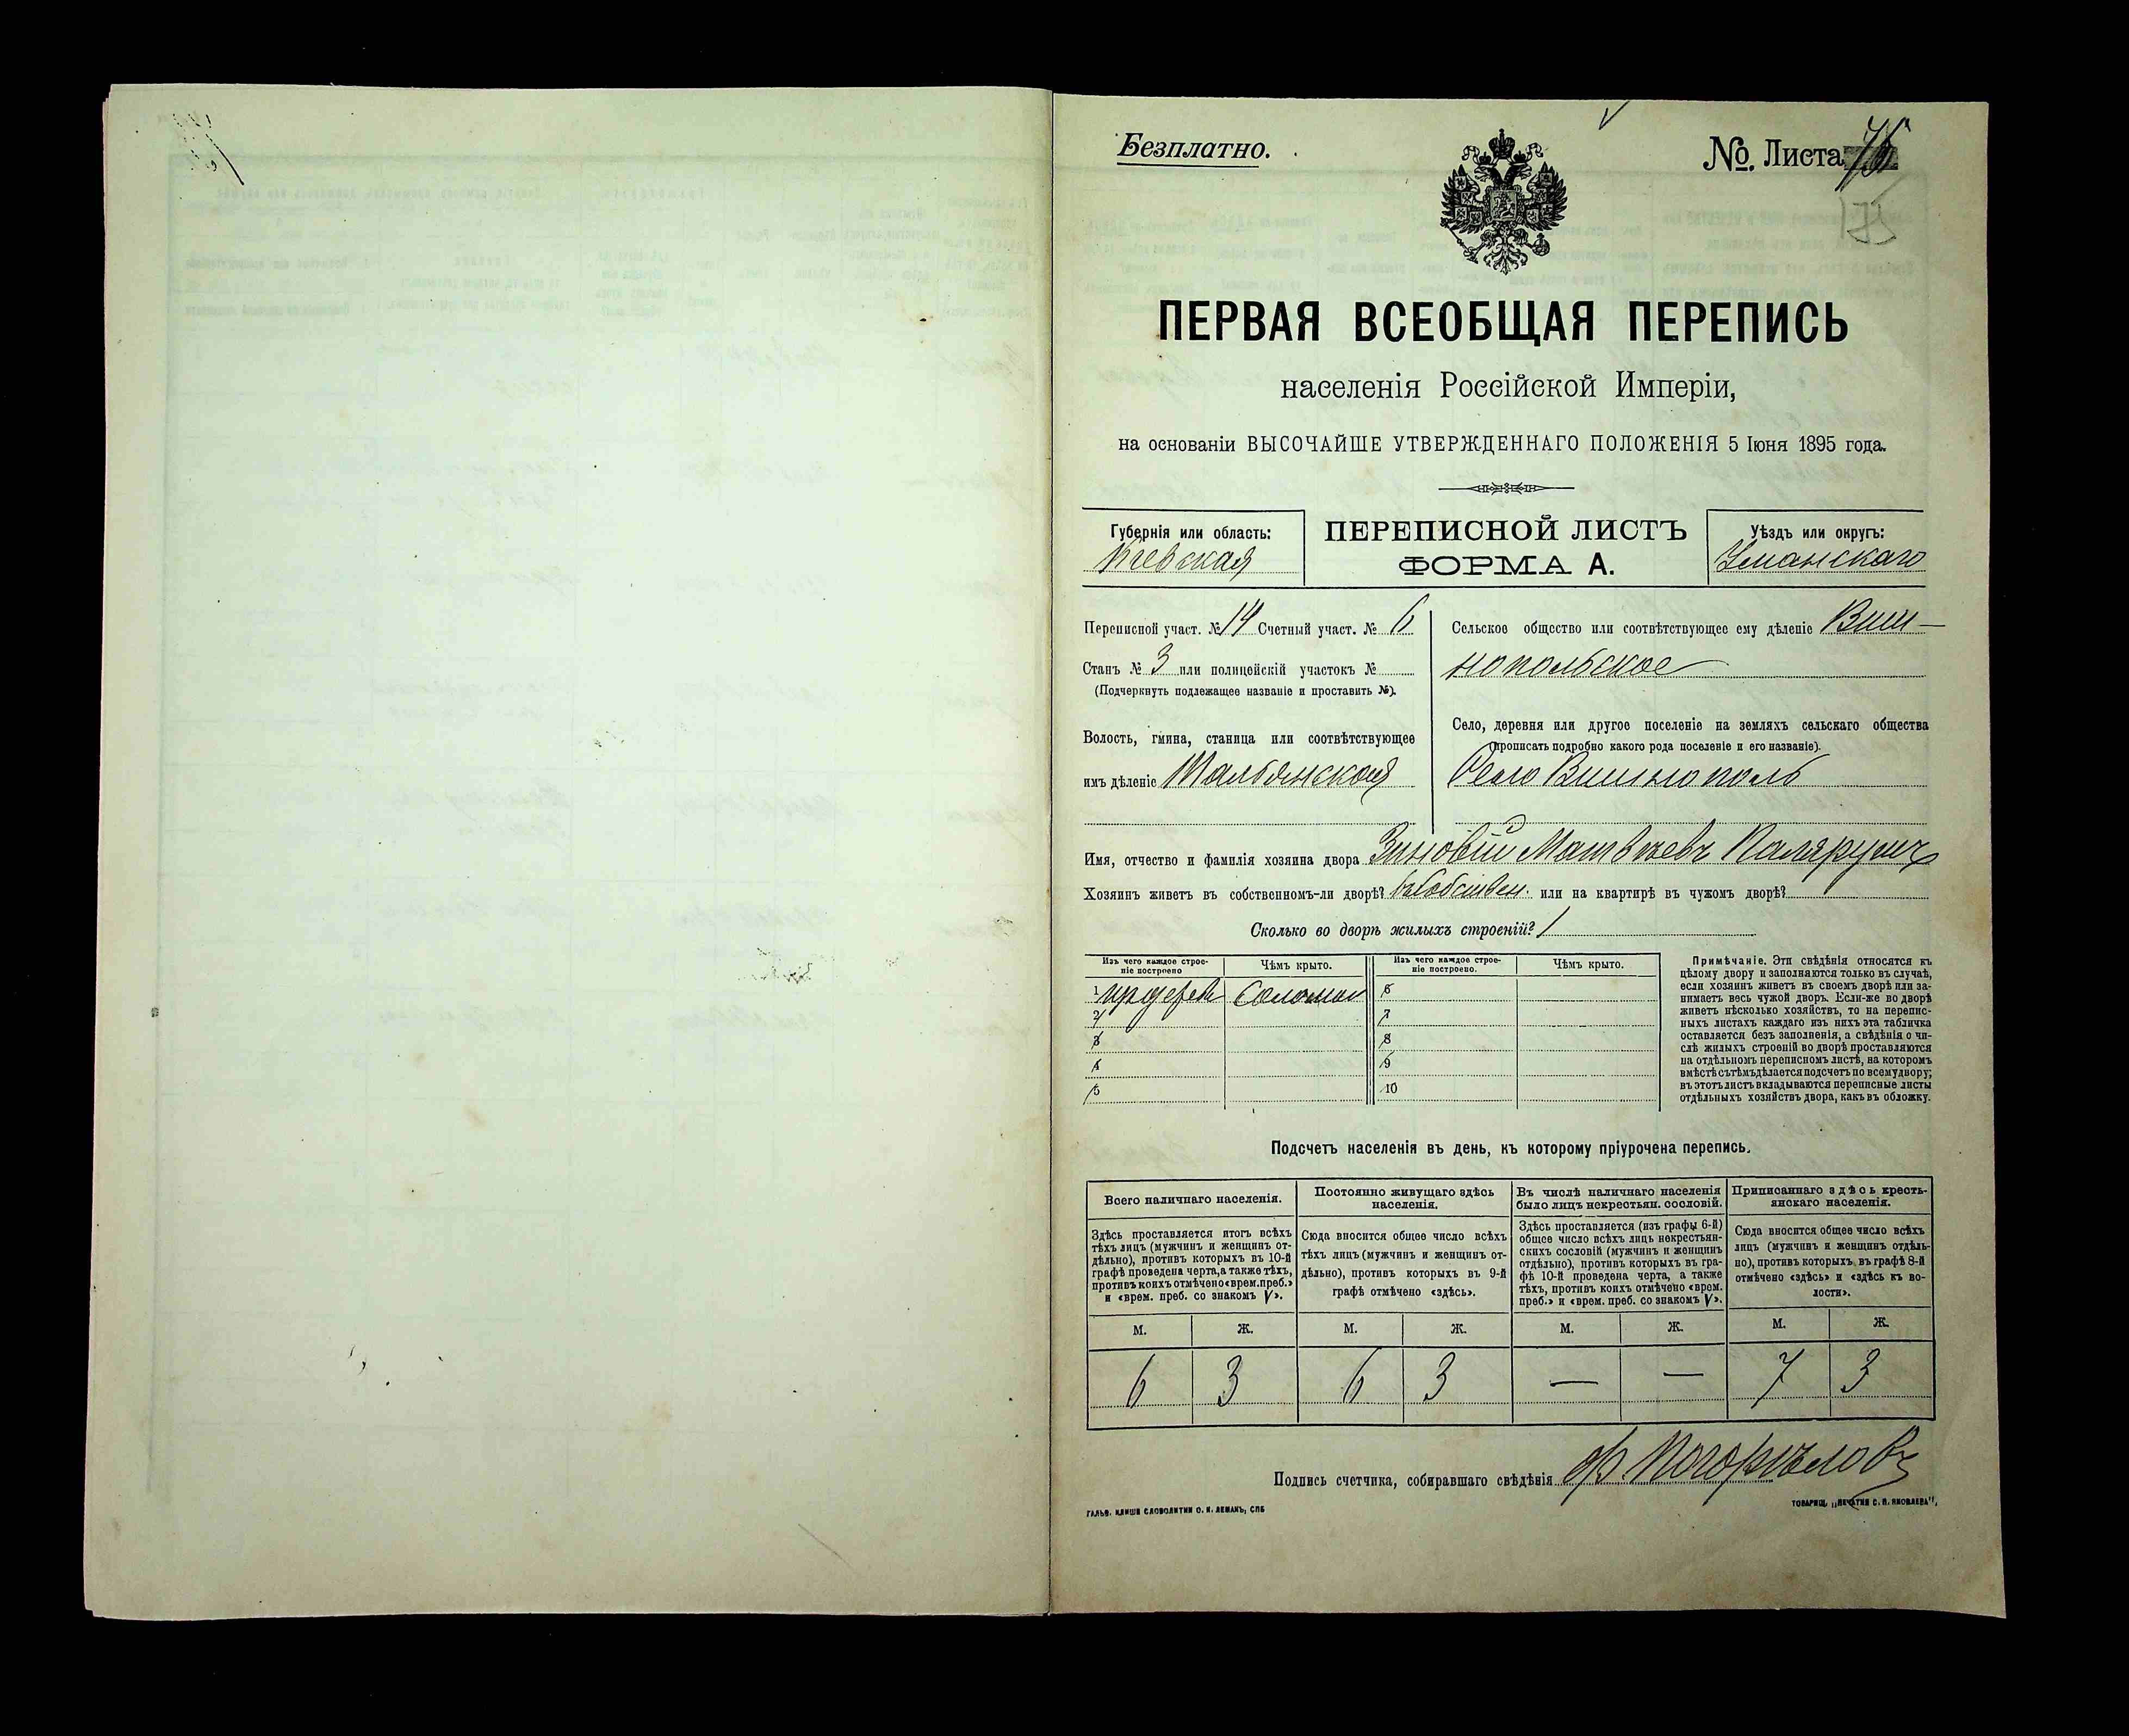 Безплатно.
No. Листа 75
175
ПЕРВАЯ ВСЕОБЩАЯ ПЕРЕПИСЬ
населенія Россійской Имперіи,
на основаніи ВЫСОЧАЙШЕ УТВЕРЖДЕННАГО ПОЛОЖЕНІЯ 5 Іюня 1895 года.
Губернія или область:
Кіевская
ПЕРЕПИСНОЙ ЛИСТЪ
ФОРМА А.
Уѣздъ или округъ:
Уманскаго
Переписной участ. № 14 Счетный участ. № 6
Станъ № 3 или полицейскій участокъ №
(Подчеркнуть подлежащее названіе и проставить №).
Волость, гмина, станица или соотвѣтствующее
имъ дѣленіе Тальянской
Сельское общество или соотвѣтствующее ему дѣленіе Виш-
нопольское
Село, деревня или другое поселеніе на земляхъ сельскаго общества
(прописать подробно какого рода поселеніе и его названіе).
Село Вишнополь
Имя, отчество и фамилія хозяина двора Зиновій Матвѣевъ
Хозяинъ живетъ въ собственномъ-ли дворѣ? въ собствен. или на квартирѣ въ чужомъ дворѣ?
Сколько во дворѣ жилыхъ строеній? 1
Изъ чего каждое строе-
ніе построено
Чѣмъ крыто.
Изъ чего каждое строе-
ніе построено.
Чѣмъ крыто.
1 Соломой 6
2 7
3 8
4 9
5 10
Примѣчаніе. Эти свѣдѣнія относятся къ
цѣлому двору и заполняются только въ случаѣ,
если хозяинъ живетъ въ своемъ дворѣ или за-
нимаетъ весь чужой дворъ. Если-же во дворѣ
живетъ нѣсколько хозяйствъ, то на перепис-
ныхъ листахъ каждаго изъ нихъ эта табличка
оставляется безъ заполненія, а свѣдѣнія о чи-
слѣ жилыхъ строеній во дворѣ проставляются
на отдѣльномъ переписномъ листѣ, на которомъ
вмѣстѣ съ тѣмъ дѣлается подсчетъ по всему двору;
въ этотъ листъ вкладываются переписные листы
отдѣльныхъ хозяйствъ двора, какъ въ обложку.
Подсчетъ населенія въ день, къ которому пріурочена перепись.
Всего наличнаго населенія.
Здѣсь проставляется итогъ всѣхъ
тѣхъ лицъ (мужчинъ и женщинъ от-
дѣльно), противъ которыхъ въ 10-й
графѣ проведена черта, а также тѣхъ,
противъ коихъ отмѣчено «врем. преб.»
и «врем. преб. со знакомъ V».
Постоянно живущаго здѣсь
населенія.
Сюда вносится общее число всѣхъ
тѣхъ лицъ (мужчинъ и женщинъ от-
дѣльно), противъ которыхъ въ 9-й
графѣ отмѣчено «здѣсь».
Въ числѣ наличнаго населенія
было лицъ некрестьян. сословій.
Здѣсь проставляется (изъ графы 6-й)
общее число всѣхъ лицъ некрестьян-
скихъ сословій (мужчинъ и женщинъ
отдѣльно), противъ которыхъ въ гра-
фѣ 10-й проведена черта, а также
тѣхъ, противъ коихъ отмѣчено «врем.
преб.» и «врем. преб. со знакомъ V».
Приписаннаго здѣсь кресть-
янскаго населенія.
Сюда вносится общее число всѣхъ
лицъ (мужчинъ и женщинъ отдѣль-
но), противъ которыхъ въ графѣ 8-й
отмѣчено «здѣсь» и «здѣсь къ во-
лости».
М. Ж. М. Ж. М. Ж. М. Ж.
6 3 6 3 — — 7 3
Подпись счетчика, собиравшаго свѣдѣнія Ф. Погорѣловъ
ГАЛЬВ. КЛИШЕ СЛОВОЛИТНИ О. И. ЛЕМАНЪ, СПБ
ТОВАРИЩ. „ПЕЧАТНЯ С. П. ЯКОВЛЕВА",